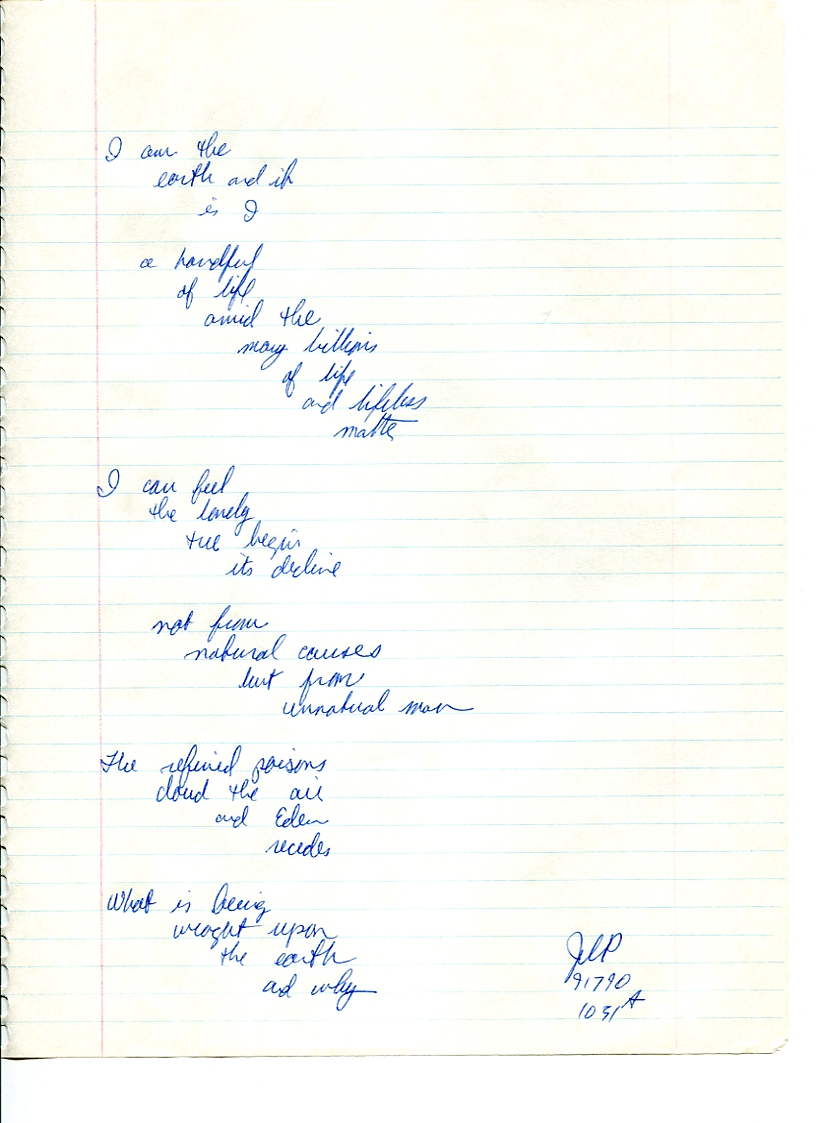 I am the
earth and it
is I
a handful
of life
amid the
many billions
of life
and lifeless
matter
I can feel
the lonely
tree begin
its decline
not from
natural causes
but from
unnatural man
The refined poisons
cloud the air
and Eden
recedes
What is being
wrought upon
the earth
and why
91790
1031 A